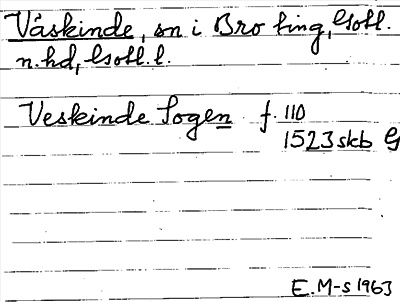 Väskinde, sn i Bro ting, Gotl.
n. hd, Gotl. l.
Veskinde Sogen f. 110
1523 skb G
E. M-s 1963